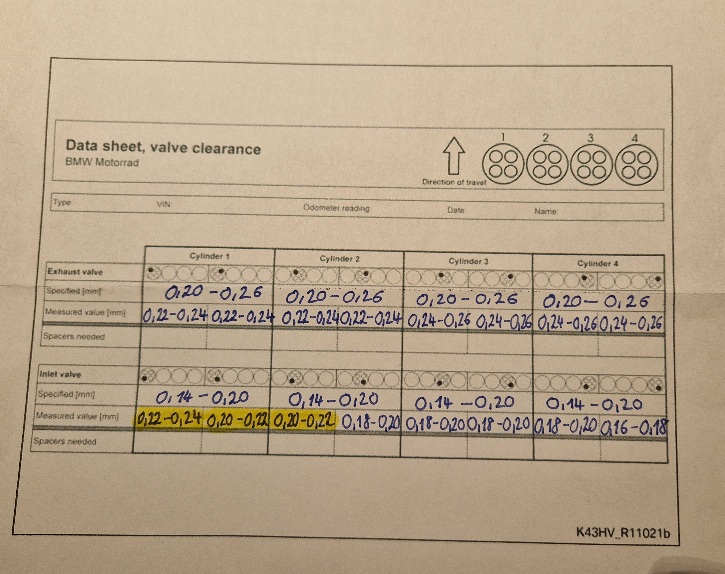 1 2 3 4
Data sheet, valve clearance
BMW Motorrad
Direction of travel
Type VIN Odometer reading Date Name
Cylinder 1 Cylinder 2 Cylinder 3 Cylinder 4
Exhaust valve
Specified [mm] 0,20-0,26 0,20-0,26 0,20-0,26 0,20-0,26
Measured value [mm] 0,22-0,24 0,22-0,24 0,22-0,24 0,22-0,24 0,24-0,26 0,24-0,26 0,24-0,26 0,24-0,26
Spacers needed
Inlet valve
Specified [mm] 0,14-0,20 0,14-0,20 0,14-0,20 0,14-0,20
Measured value [mm] 0,22-0,24 0,20-0,22 0,20-0,22 0,18-0,20 0,18-0,20 0,18-0,20 0,18-0,20 0,16-0,18
Spacers needed
K43HV_R11021b